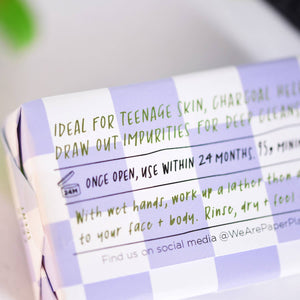 IDEAL FOR TEENAGE SKIN, CHARCOAL
DRAW OUT IMPURITIES FOR DEEP
24M
ONCE OPEN, USE WITHIN 24 MONTHS. 95g,
With wet hands, work up a lather then
to your face + body. Rinse, dry + feel
Find us on social media @WeArePaperPl